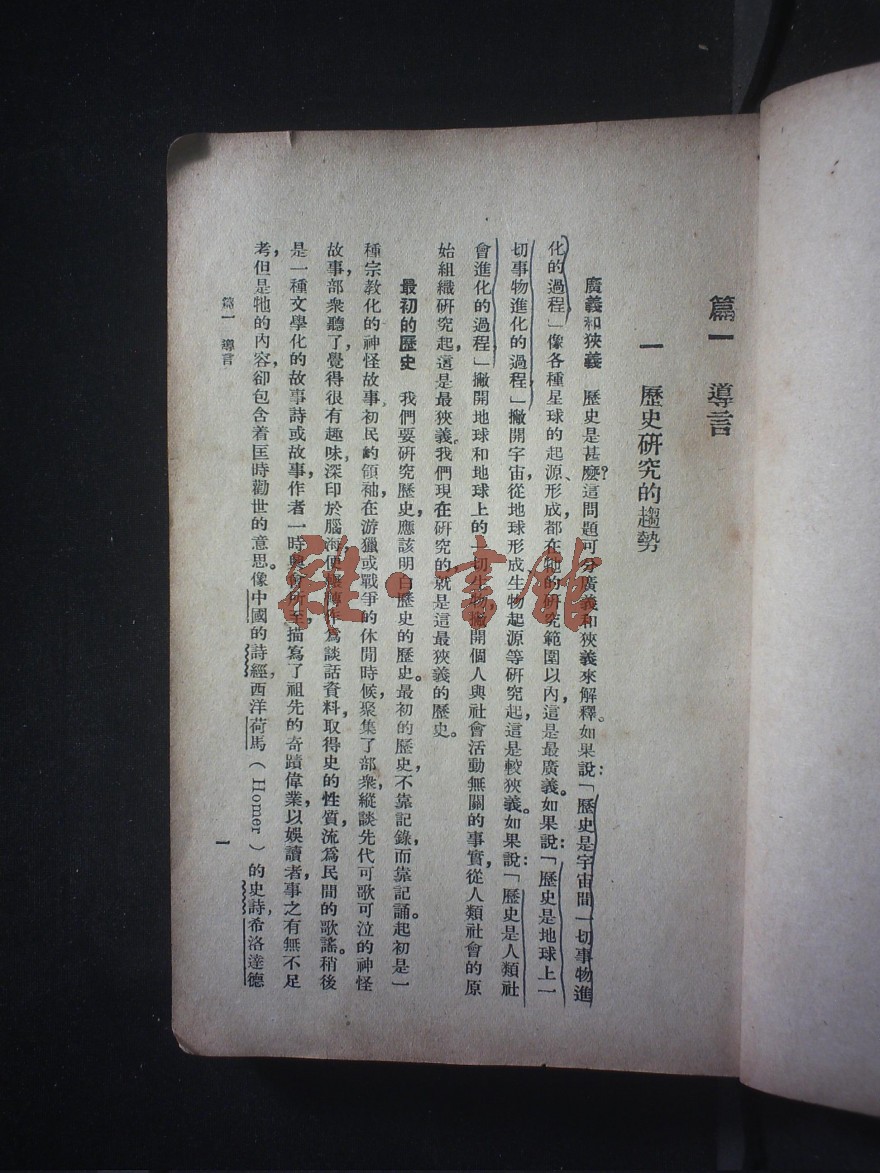 篇一　導言
一　歷史研究的趨勢
廣義和狹義　歷史是甚麼？這問題可分廣義和狹義來解釋。如果說：「歷史是宇宙間一切事物進
化的過程」像各種星球的起源、形成，都在牠的研究範圍以內，這是最廣義。如果說：「歷史是地球上一
切事物進化的過程」撇開宇宙，從地球形成、生物起源等研究起，這是較狹義。如果說：「歷史是人類社
會進化的過程」撇開地球和地球上的一切生物，撇開個人與社會活動無關的事實，從人類社會的原
始組織研究起，這是最狹義。我們現在研究的，就是這最狹義的歷史。
最初的歷史　我們要研究歷史，應該明白歷史的歷史。最初的歷史，不靠記錄，而靠記誦。起初是一
種宗教化的神怪故事，初民的領袖，在游獵或戰爭的休閒時候，聚集了部衆，縱談先代可歌可泣的神怪
故事，部衆聽了，覺得很有趣味，深印於腦海，便轉作爲談話資料，取得史的性質，流爲民間的歌謠。稍後
是一種文學化的故事詩或故事，作者一時興會所至，描寫了祖先的奇蹟偉業，以娛讀者，事之有無不足
考，但是牠的內容，卻包含着匡時勸世的意思。像中國的詩經，西洋荷馬（Homer）的史詩，希洛達德
篇一　導言
一
雜·書館